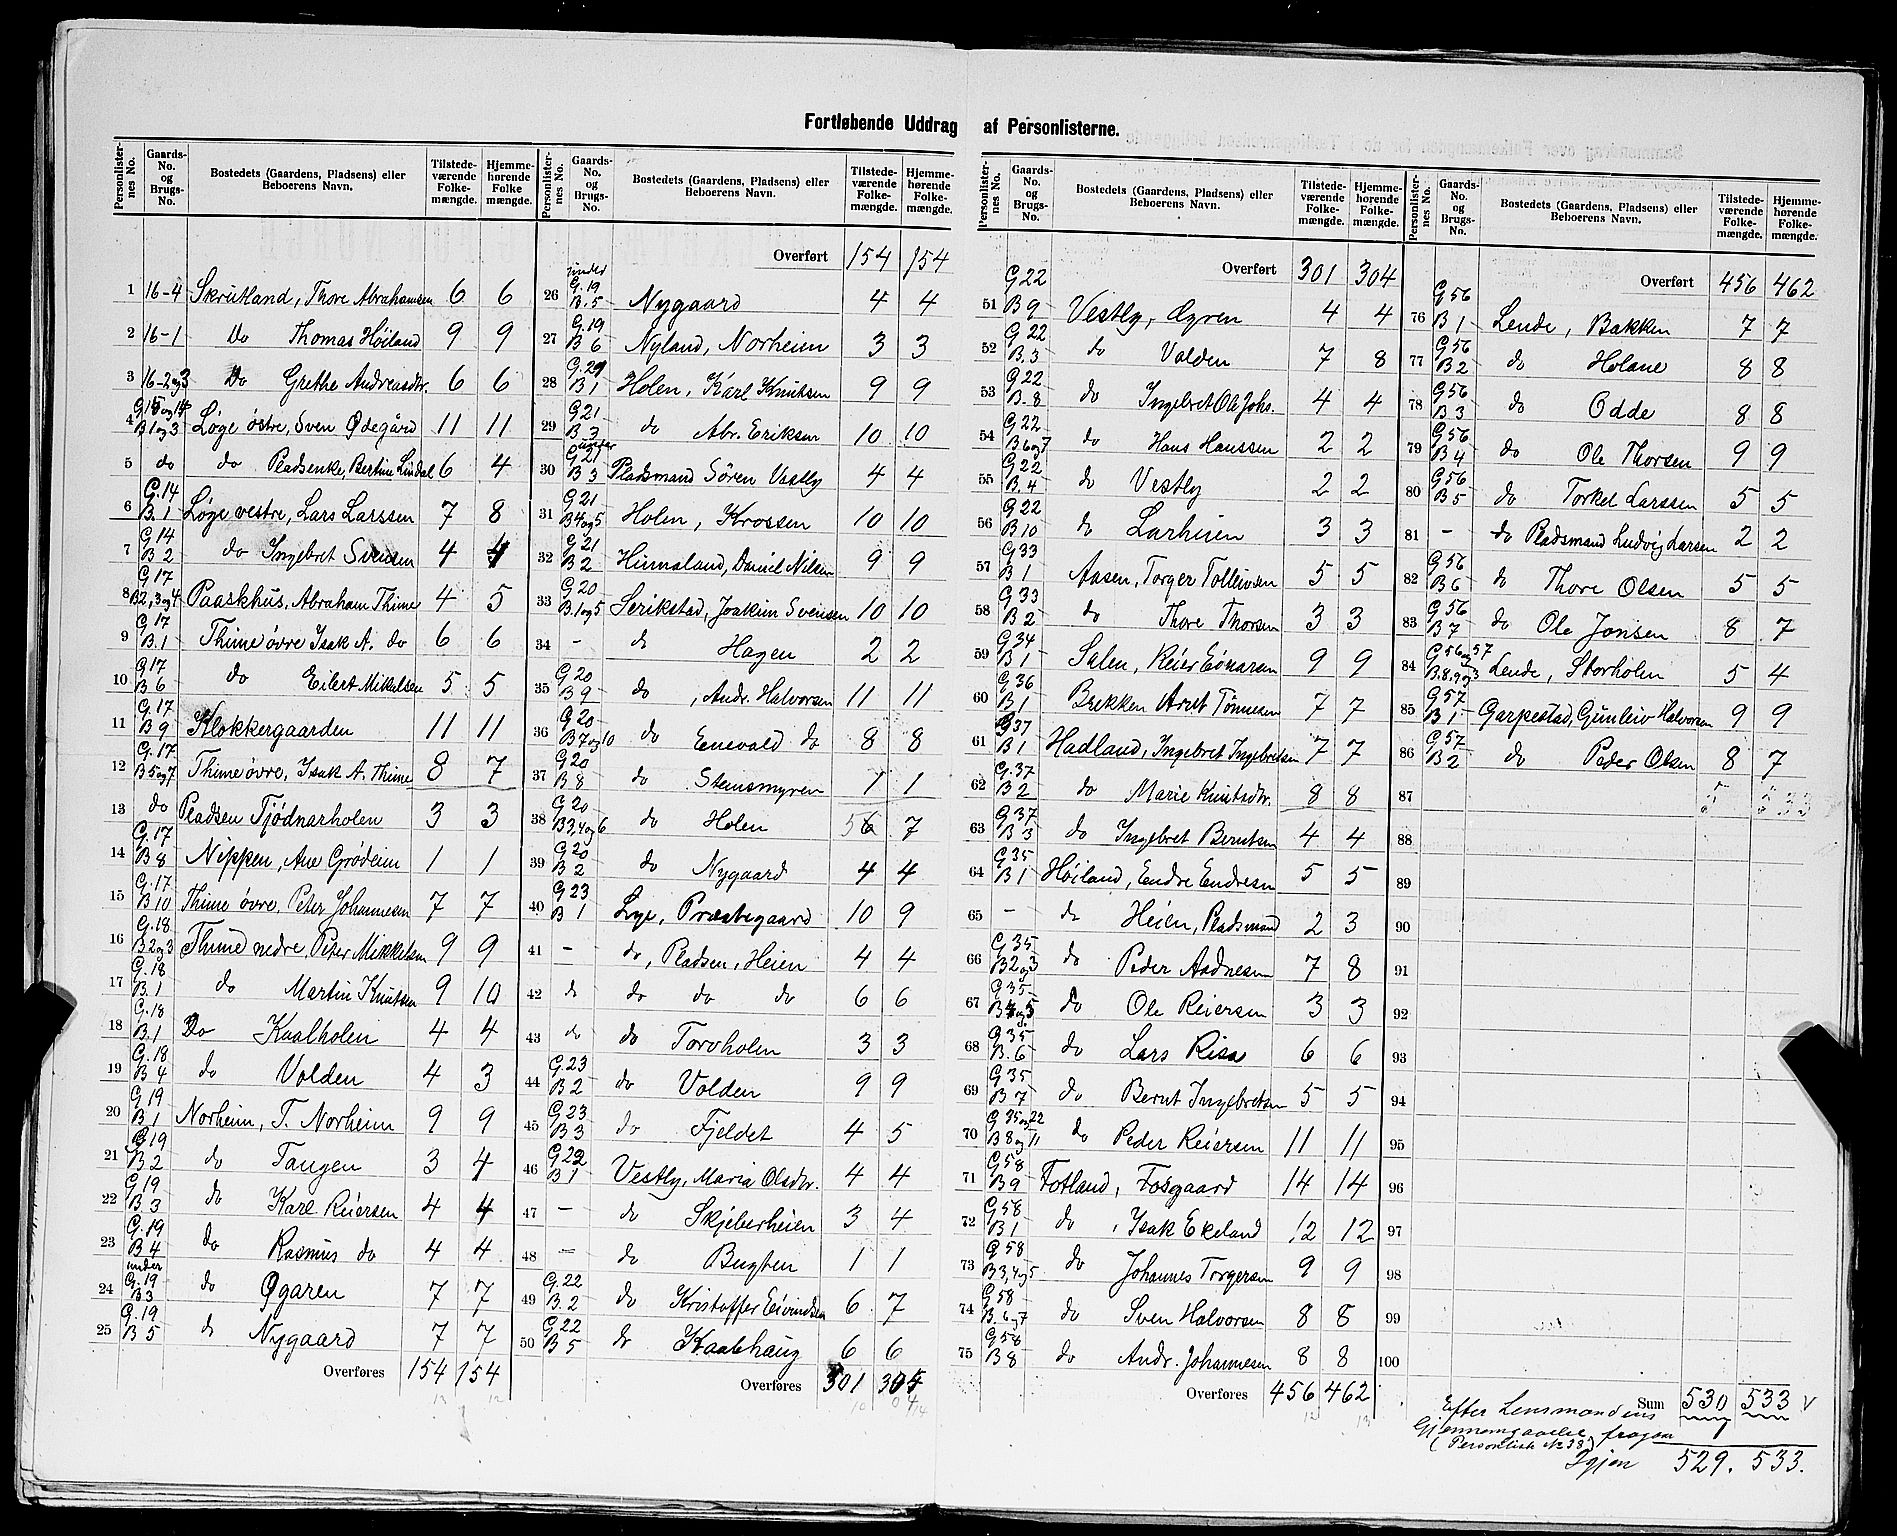 Fortløbende Uddrag af Personlisterne.
Personlisternes No. Gaards-No. og Brugs-No. Bostedets (Gaardens, Pladsens) eller Beboerens Navn. Tilstedeværende Folkemængde. Hjemmehørende Folkemængde.
1 16-4 Skrutland, Thore Abrahamsen 6 6
2 16-1 Do Thomas Høiland 9 9
3 16-2og3 Do Grethe Andreasdtr. 6 6
4 G15og14 B1og3 Løge østre, Sven Ødegård 11 11
5 do do Pladsenke, Bertine Lindal 6 4
6 G.14 B.1 Løge vestre, Lars Larssen 7 8
7 G14 B2 do Ingebret Svensen 4 4
8 G17 B2,3og4 Paaskhus, Abraham Thime 4 5
9 G.17 B.1 Thime øvre Isak A. do 6 6
10 G17 B6 do Eilert Mikalsen 5 5
11 G.17 B9 Klokkergaarden 11 11
12 G.17 B5og7 Thime øvre, Isak A. Thime 8 7
13 do Pladsen Tjødnarholen 3 3
14 G.17 B8 Nippen, Ane Grødeim 1 1
15 G.17 B10 Thime øvre, Peter Johannesen 7 7
16 G.18 B.2og3 Thime nedre, Peter Mikkelsen 9 9
17 G.18 B.1 do Martin Knutsen 9 10
18 G.18 B.1 Do Kaalholen 4 4
19 G.18 B4 do Volden 4 3
20 G19 B1 Norheim, T. Norheim 9 9
21 G19 B2 do Tangen 3 4
22 G19 B.3 do Karl Reiersen 4 4
23 G.19 B4 do Rasmus do 4 4
24 under G.19 B3 do Øgaren 7 7
25 G.19 B5 do Nygaard 7 7
Overføres 154 154
Personlisternes No. Gaards-No. og Brugs-No. Bostedets (Gaardens, Pladsens) eller Beboerens Navn. Tilstedeværende Folkemængde. Hjemmehørende Folkemængde.
Overført 154 154
26 under G.19 B.5 Nygaard 4 4
27 G.19 B6 Nyland, Norheim 3 3
28 G.21 B1 Holen, Karl Knutsen 9 9
29 G21 B3 do Abr. Eriksen 10 10
30 under G21 B3 Pladsmand Sören Vastly 4 4
31 G21 B4og5 Holen, Krossen 10 10
32 G21 B2 Hinnaland, Daniel Nilsen 9 9
33 G20 B.1og5 Serikstad, Joakim Svensen 10 10
34 - do Hagen 2 2
35 G20 B9 do, Andr. Halvorsen 11 11
36 G20 B7og10 do Enevald do 8 8
37 G20 B8 do Steinsmyren 1 1
38 G20 B3,4og6 do Holen 5 6 7
39 G20 B2 do Nygaard 4 4
40 G23 B1 Lye, Præstegaard 10 9
41 - do, Pladsen, Heien 4 4
42 do do do do 6 6
43 do do Torvholen 3 3
44 G.23 B2 do Volden 9 9
45 G23 B3 do Fjeldet 4 5
46 G22 B1 Vestly, Maria Olsdtr. 4 4
47 - do Skjeberheien 3 4
48 - do Bugten 1 1
49 G.22 B.2 do Kristoffer Eivindsen 6 7
50 G22 B5 do Kaalhaug 6 6
Overføres 301 304
Personlisternes No. Gaards-No. og Brugs-No. Bostedets (Gaardens, Pladsens) eller Beboerens Navn. Tilstedeværende Folkemængde. Hjemmehørende Folkemængde.
Overført 301 304
51 G22 B9 Vestly, Øyren 4 4
52 G22 B.3 do Volden 7 8
53 G22 B.8 do Ingebret Ole Johs. 4 4
54 G22 B6og7 do Hans Hanssen 2 2
55 G22 B.4 do Vestly 2 2
56 G22 B10 do Larheien 3 3
57 G33 B1 Aasen, Torger Tolleivsen 5 5
58 G33 B2 do Thore Thorsen 3 3
59 G34 B1 Salen, Reier Einarsen 9 9
60 G36 B1 Brekken Arnt Tønnesen 7 7
61 G37 B1 Hadland, Ingebret Ingebretsen 7 7
62 G.37 B2 do Marie Knutsdtr. 8 8
63 G37 B3 do Ingebret Berntsen 4 4
64 G35 B1 Høiland, Endre Endresen 5 5
65 - do Heien, Pladsmand 2 3
66 G35 B2og3 do Peder Aadnesen 7 8
67 G35 B4og5 do Ole Reiersen 3 3
68 G35 B.6 do Lars Risa 6 6
69 G35 B7 do Bernt Ingebretsen 5 5
70 G35og22 B8og11 do Peder Reiersen 11 11
71 G58 B9 Fotland, Fosgaard 14 14
72 G58 B1 do, Isak Ekeland 12 12
73 G58 B3,4og5 do Johannes Torgersen 9 9
74 G58 B.6og7 do Sven Halvorsen 8 8
75 G58 B8 do Andr. Johannesen 8 8
Overføres 456 462
Personlisternes No. Gaards-No. og Brugs-No. Bostedets (Gaardens, Pladsens) eller Beboerens Navn. Tilstedeværende Folkemængde. Hjemmehørende Folkemængde.
Overført 456 462
76 G56 B1 Lende, Bakken 7 7
77 G56 B2 do Holane 8 8
78 G56 B3 do Odde 8 8
79 G56 B4 do Ole Thorsen 9 9
80 G56 B5 do Torkel Larssen 5 5
81 - do Pladsmand Ludvig Larsen 2 2
82 G56 B6 do Thore Olsen 5 5
83 G56 B7 do Ole Jonsen 8 7
84 G56og57 B.8.9og3 Lende, Storholen 5 4
85 G57 B1 Garpestad, Gunleiv Halvorsen 9 9
86 G57 B2 do Peder Olsen 8 7
87
88
89
90
91
92
93
94
95
96
97
98
99
100
Sum 530 533 v
Efter Lensmandens
Gjennemgaaelse fragaar
(Personliste No 38) 1
Igjen 529. 533.